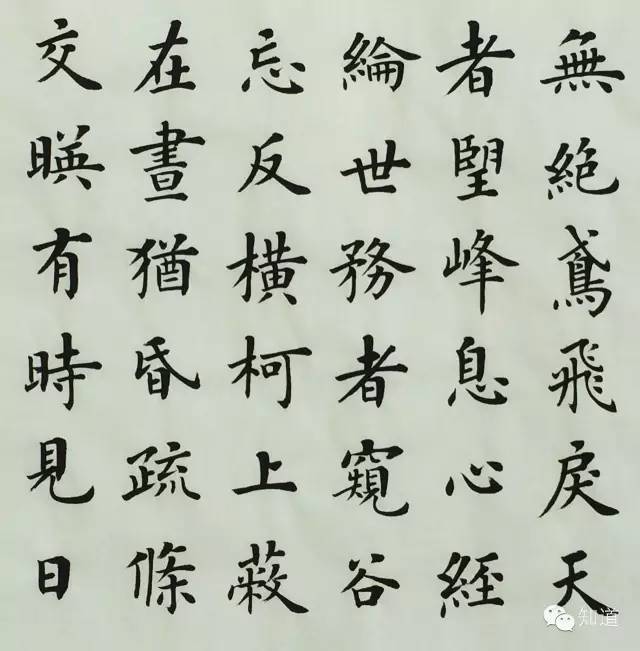 無絶鳶飛戾天
者望峰息心經
綸世務者窺谷
忘反橫柯上蔽
在晝猶昏疏條
交暎有時見日
知道